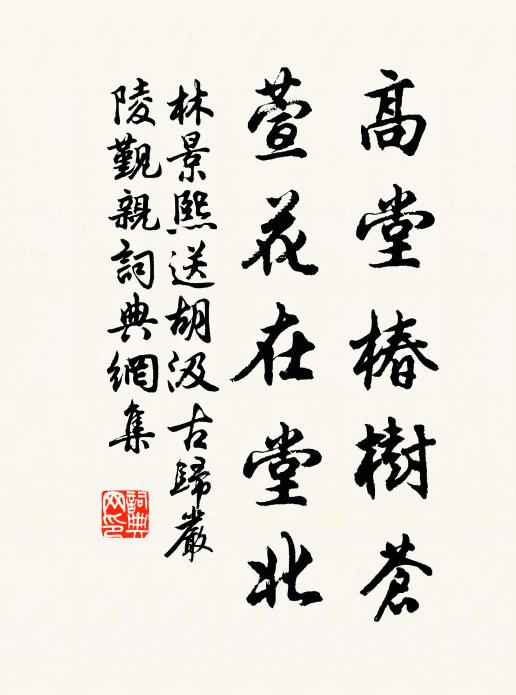 高堂椿樹蒼
萱花在堂北
林景熙送胡汲古歸嚴
陵觀親詞典網集
詞典
网印